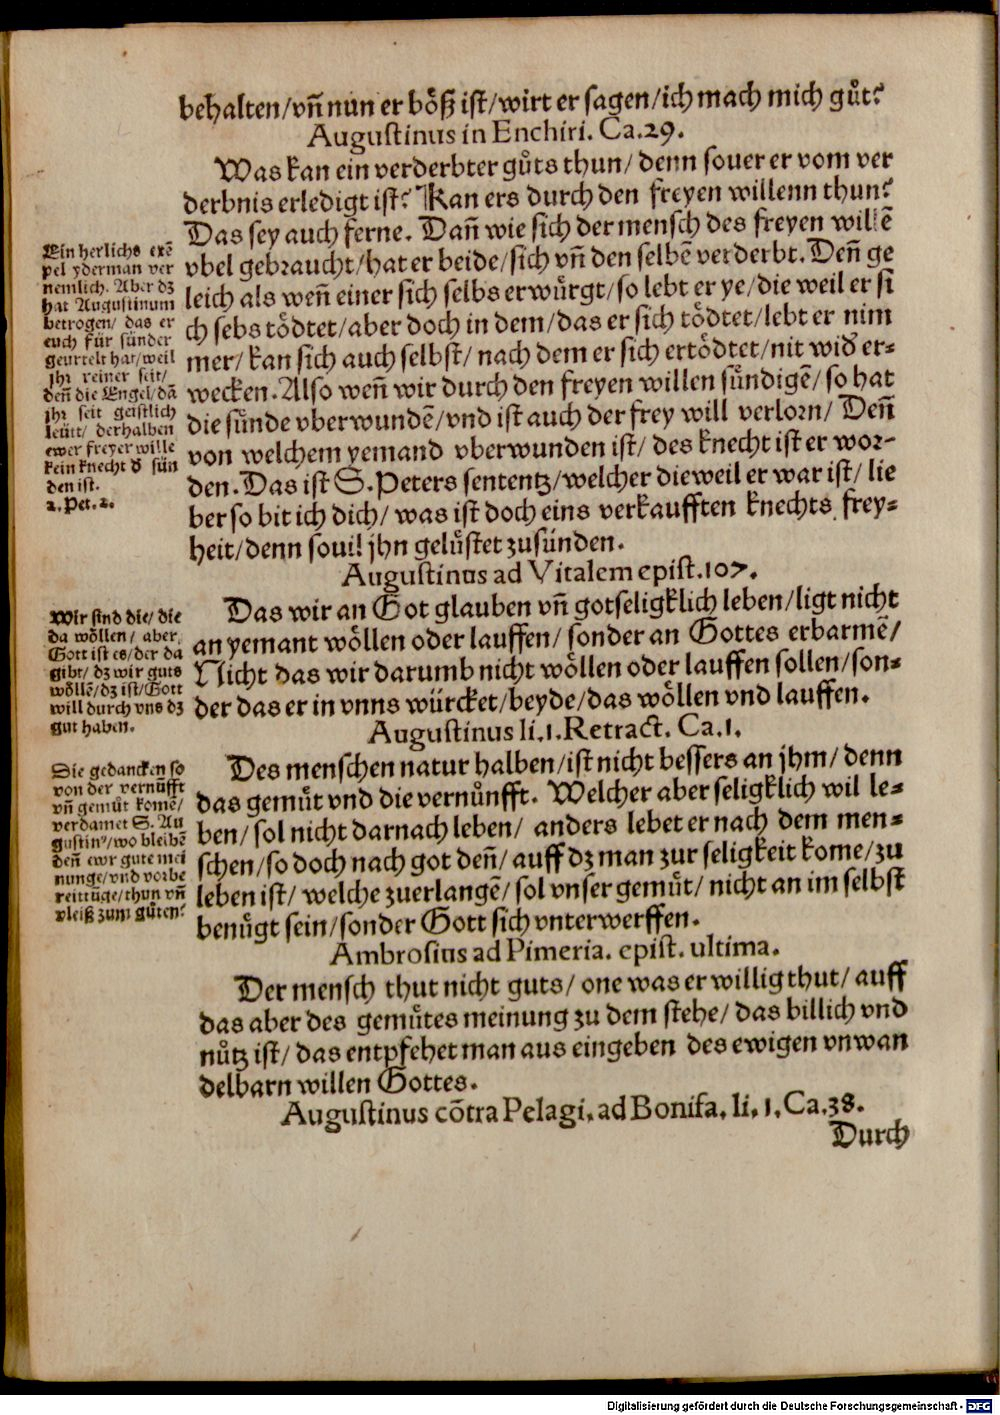 behalten/vñ nun er böß ist/wirt er sagen/ich mach mich gůt?
Augustinus in Enchiri. Ca.29.
Was kan ein verderbter gůts thun/ denn souer er vom ver
derbnis erledigt ist? Kan ers durch den freyen willenn thun?
Das sey auch ferne. Dañ wie sich der mensch des freyen willē
vbel gebraucht/hat er beide/sich vñ den selbē verderbt. Deñ ge
leich als weñ einer sich selbs erwürgt/so lebt er ye/die weil er si
ch sebs tödtet/aber doch in dem/das er sich tödtet/lebt er nim
mer/kan sich auch selbst/nach dem er sich ertödtet/nit wiď er-
wecken. Also weñ wir durch den freyen willen sündigē/so hat
die sünde vberwundē/vnd ist auch der frey will verlorn/ Deñ
von welchem yemand vberwunden ist/ des knecht ist er wor-
den. Das ist S. Peters sententz/welcher dieweil er war ist/ lie
ber so bit ich dich/ was ist doch eins verkaufften knechts frey-
heit/denn souil jhn gelüstet zusünden.
Augustinus ad Vitalem epist.107.
Das wir an Got glauben vñ gotseligklich leben/ligt nicht
an yemant wöllen oder lauffen/ sonder an Gottes erbarmē/
Nicht das wir darumb nicht wöllen oder lauffen sollen/son-
der das er in vnns würcket/beyde/das wöllen vnd lauffen.
Augustinus li.1.Retract. Ca.1.
Des menschen natur halben/ist nicht bessers an jhm/ denn
das gemůt vnd die vernünfft. Welcher aber seligklich wil le-
ben/sol nicht darnach leben/ anders lebet er nach dem men-
schen/so doch nach got deñ/auff dz man zur seligkeit kome/zu
leben ist/ welche zuerlangē/ sol vnser gemůt/ nicht an im selbst
benůgt sein/sonder Gott sich vnterwerffen.
Ambrosius ad Pimeria. epist. ultima.
Der mensch thut nicht guts/ one was er willig thut/ auff
das aber des gemůtes meinung zu dem stehe/ das billich vnd
nütz ist/ das entpfehet man aus eingeben des ewigen vnwan
delbarn willen Gottes.
Augustinus cōtra Pelagi, ad Bonifa, li, 1, Ca.38.
Durch
Ein herlichs exē
pel yderman ver
nemlich. Aber dz
hat Augustinum
betrogen/ das er
euch für sünder
geurtelt hat/weil
jhr reiner seit/
deñ die Engel/dā
jhr seit geistlich
leütt/ derhalben
ewer freyer wille
kein knecht ď sün
den ist.
2. Pet. 2.
Wir sind die/ die
da wöllen/ aber
Gott ist es/der da
gibt/ dz wir guts
wöllē/dz ist/Gott
will durch vns dz
gut haben.
Die gedancken so
von der vernufft
vñ gemůt komē/
verdamet S. Au
gustin9/wo bleibē
deñ ewr gute mei
nunge/vnd vorbe
reittūge/thun vñ
vleiß zum gůten?
Digitalisierung gefördert durch die Deutsche Forschungsgemeinschaft - DFG